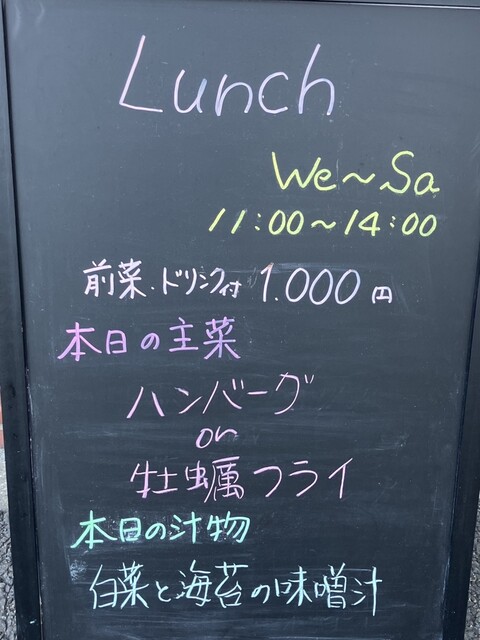 Lunch
We~Sa
11:00~14:00
前菜・ドリンク付 1.000円
本日の主菜
ハンバーグ
or
牡蠣フライ
本日の汁物
白菜と海苔の味噌汁